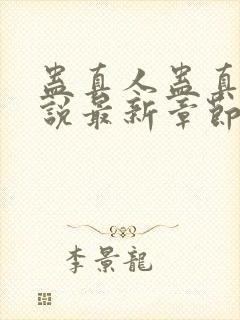 蛊真人蛊真
說最新章節
李景龍